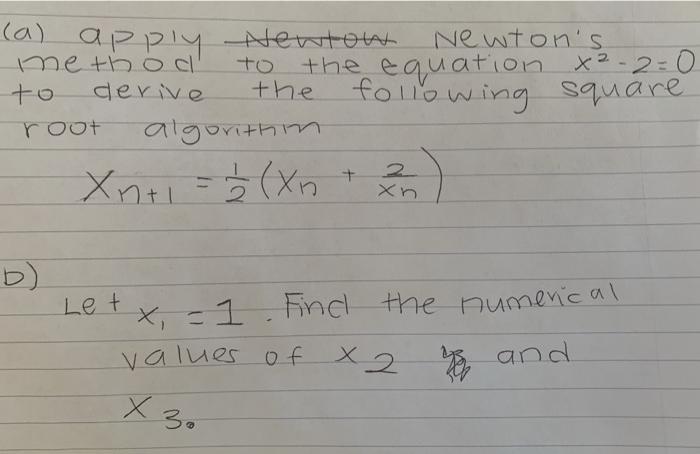 (a) apply Newton Newton's
method to the equation x² - 2 = 0
to derive the following square
root algorithm
Xn+1 = 1/2 (Xn + 2/xn)
b)
Let x₁ = 1. Find the numerical
values of x2 and
x3.